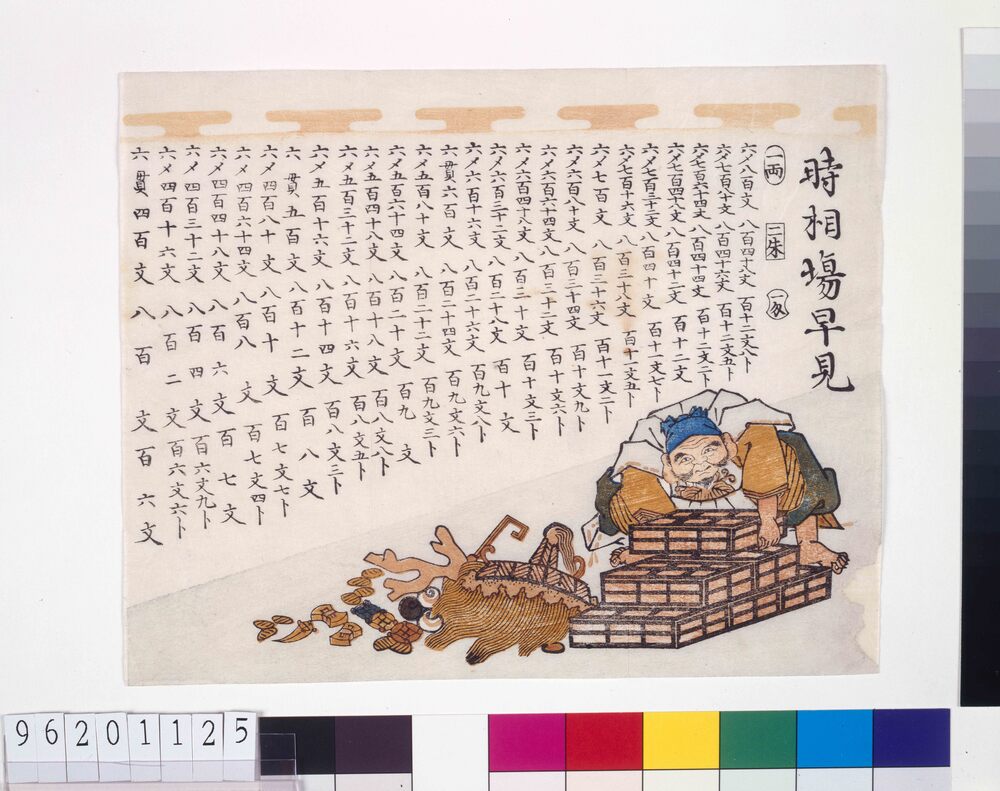 時相塲早見
一両 二朱 一匁
六〆八百文 八百四十八文 百十二文八卜
六〆七百八十文 八百四十六文 百十二文五卜
六〆七百六十四文 八百四十四文 百十二文二卜
六〆七百四十八文 八百四十二文 百十二文
六〆七百三十二文 八百四十文 百十一文七卜
六〆七百十六文 八百三十八文 百十一文五卜
六〆七百文 八百三十六文 百十一文二卜
六〆六百八十文 八百三十四文 百十文九卜
六〆六百六十四文 八百三十二文 百十文六卜
六〆六百四十八文 八百三十文 百十文三卜
六〆六百三十二文 八百二十八文 百十文
六〆六百十六文 八百二十六文 百九文八卜
六貫六百文 八百二十四文 百九文六卜
六〆五百八十文 八百二十二文 百九文三卜
六〆五百六十四文 八百二十文 百九文
六〆五百四十八文 八百十八文 百八文八卜
六〆五百三十二文 八百十六文 百八文五卜
六〆五百十六文 八百十四文 百八文三卜
六貫五百文 八百十二文 百八文
六〆四百八十文 八百十文 百七文七卜
六〆四百六十四文 八百八文 百七文四卜
六〆四百四十八文 八百六文 百七文
六〆四百三十二文 八百四文 百六文九卜
六〆四百十六文 八百二文 百六文六卜
六貫四百文 八百文 百六文
96201125